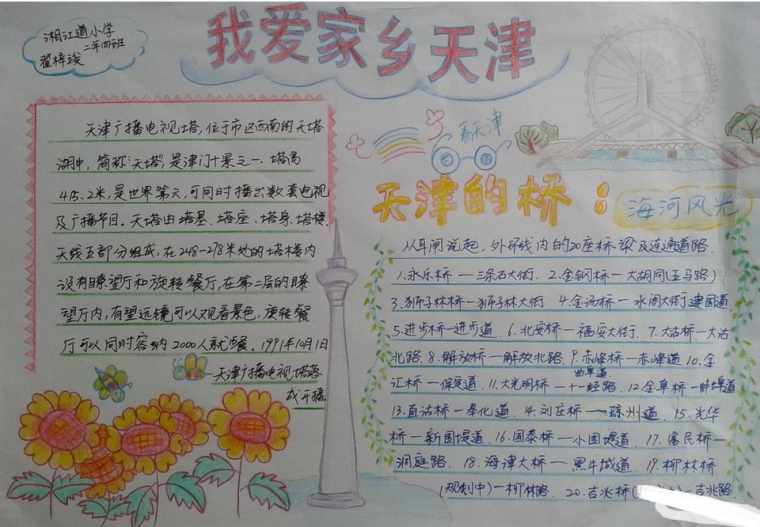 湘江道小学
二年四班
翟梓
我爱家乡天津
看天津
天津广播电视塔,位于市区西南的天塔
湖中,简称“天塔”,是津门十景之一.塔高
415.2米,是世界第六,可同时播出数套电视
及广播节目。天塔由塔基、塔座、塔身、塔楼、
天线五部分组成,在248-278米处的塔楼内
设有瞭望厅和旋转餐厅,在第二层的瞭
望厅内,有望远镜可以观看景色,旋转餐
厅可以同时容纳2000人就餐.1991年10月1日
天津广播电视塔落
成开播
天津的桥:
海河风光
从耳闸说起,外环线内的20座桥梁及连通道路
1.永乐桥——三条石大街 2.金钢桥—大胡同(五马路)
3.狮子林桥—狮子林大街 4.金汤桥—水阁大街建国道
5.进步桥—进步道 6.北安桥—福安大街 7.大沽桥—大沽
北路 8.解放桥—解放北路 9.赤峰桥—赤峰道 10.金
汇桥—保定道 11.大光明桥—十一经路 12.金阜桥—蚌埠道
曲阜道
13.直沽桥—奉化道 14.刘庄桥—琼州道 15.光华
桥—新围堤道 16.国泰桥—小围堤道 17.富民桥—
洞庭路 18.海津大桥—黑牛城道 19.柳林桥
(规划中)—柳林路 20.吉兆桥
—吉兆路